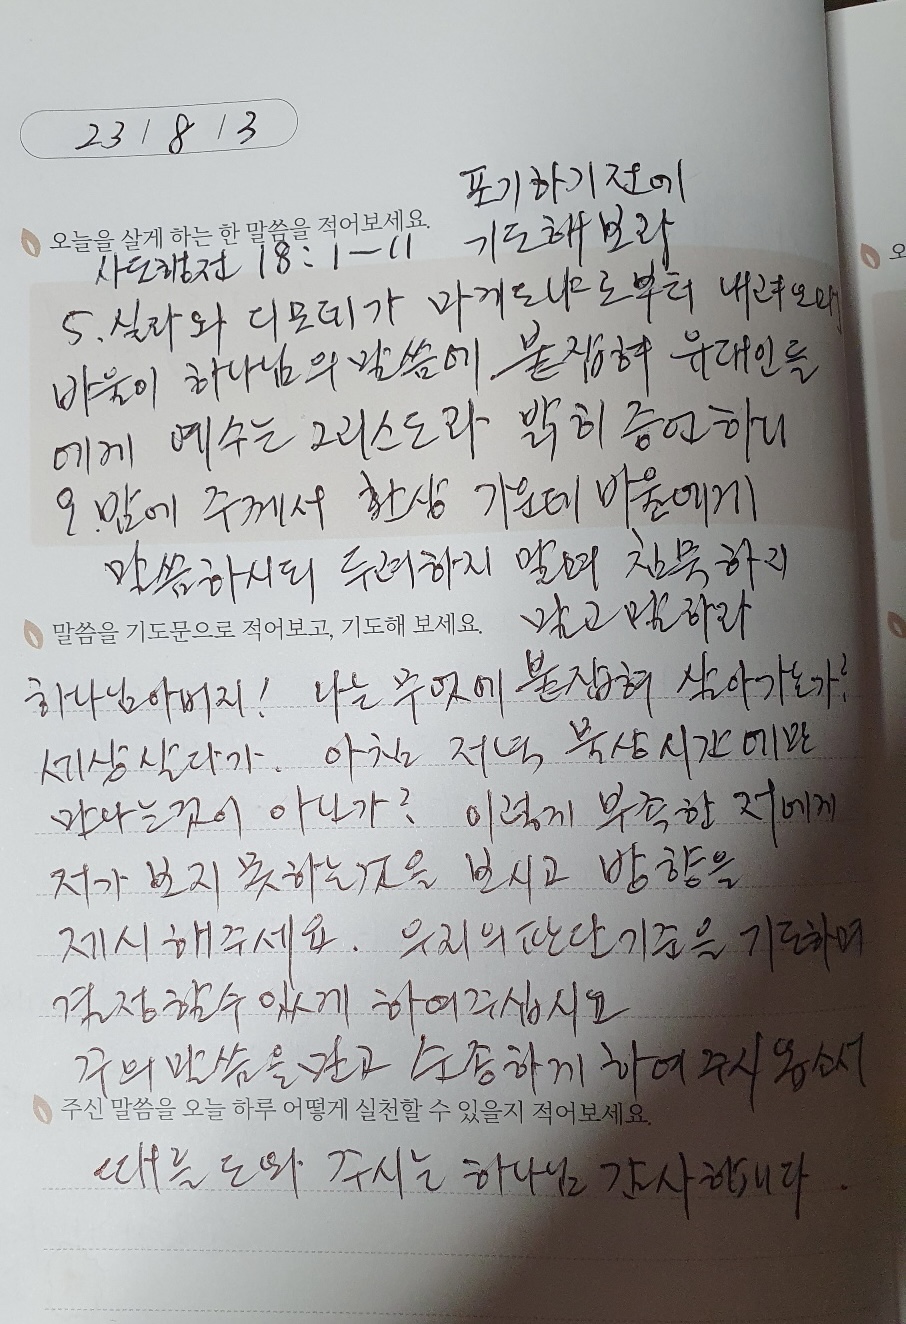 23 / 8 / 3
포기하기전에
기도해보라
오늘을 살게 하는 한 말씀을 적어보세요.
사도행전 18:1-11
5. 실라와 디모데가 마게도냐으로부터 내려오매
바울이 하나님의 말씀에 붙잡혀 유대인들
에게 예수는 그리스도라 밝히 증언하니
9. 밤에 주께서 환상 가운데 바울에게
말씀하시되 두려하지 말며 침묵하지
말고 말하라
말씀을 기도문으로 적어보고, 기도해 보세요.
하나님아버지! 나는 무엇에 붙잡혀 살아가는가?
세상살다가. 아침 저녁 묵상시간에만
만나는것이 아닌가? 이렇게 부족한 저에게
저가 보지 못하는것을 보시고 방향을
제시해주세요. 우리의 판단기준을 기도하며
결정할수있게 하여주십시요
주의 말씀을 듣고 순종하게 하여주시옵소서
주신 말씀을 오늘 하루 어떻게 실천할 수 있을지 적어보세요.
때를 도와 주시는 하나님 감사합니다.